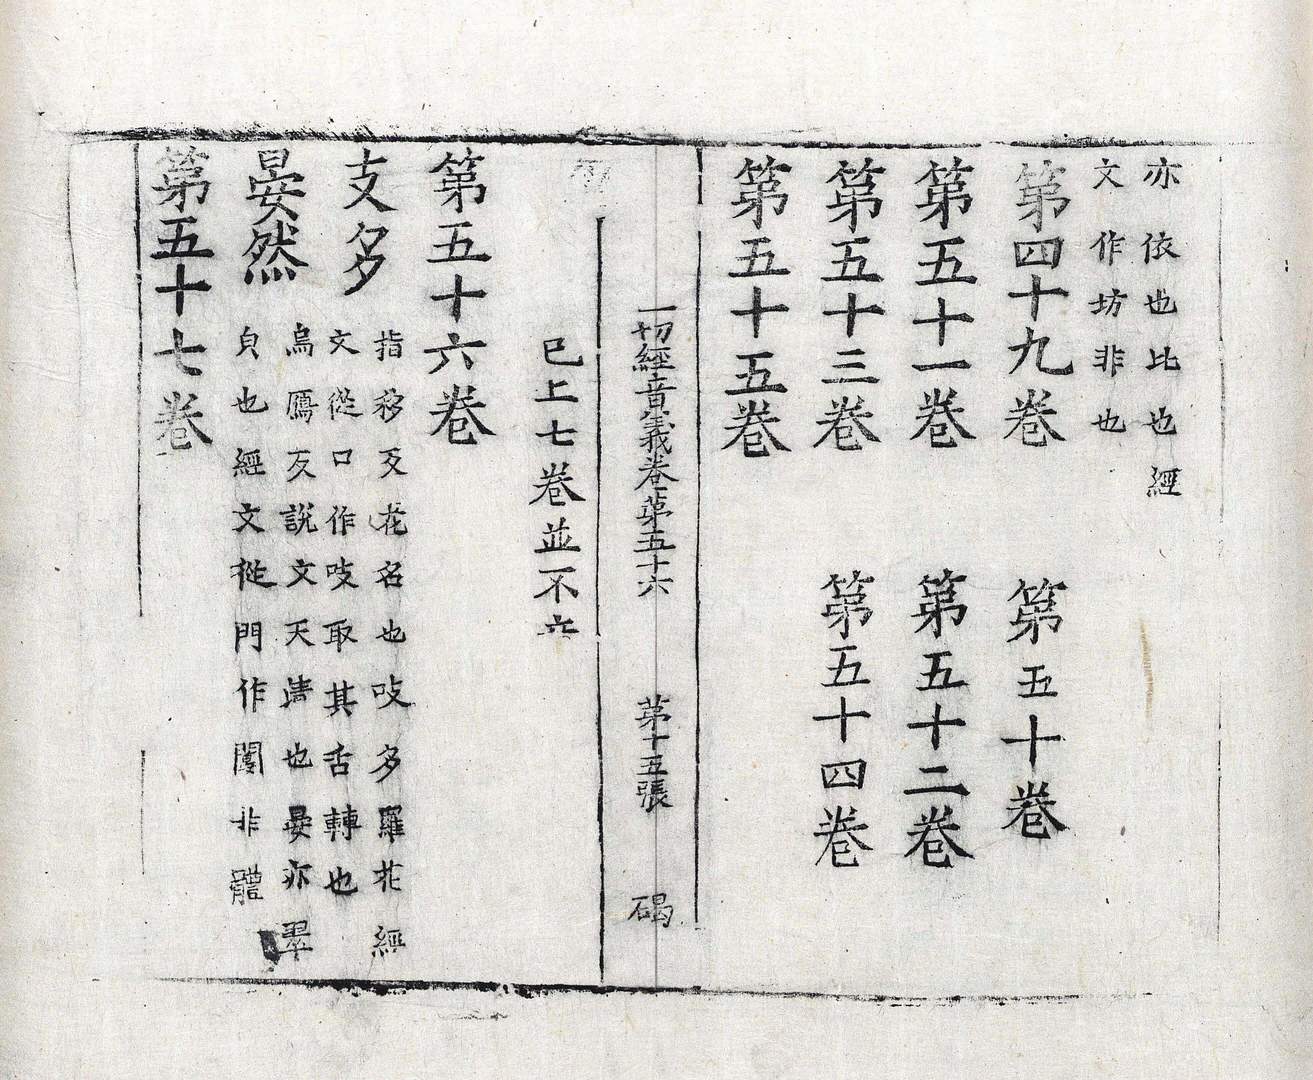 亦依也比也經
文作坊非也
第四十九卷 第五十卷
第五十一卷 第五十二卷
第五十三卷 第五十四卷
第五十五卷
一切經音義卷第五十六 第十五張 碣
已上七卷並不
第五十六卷
支多 指移反花名也吱多羅花經
文從口作吱取其舌轉也
晏然 烏鴈反說文天清也晏亦
皃也經文從門作 非體
第五十七卷